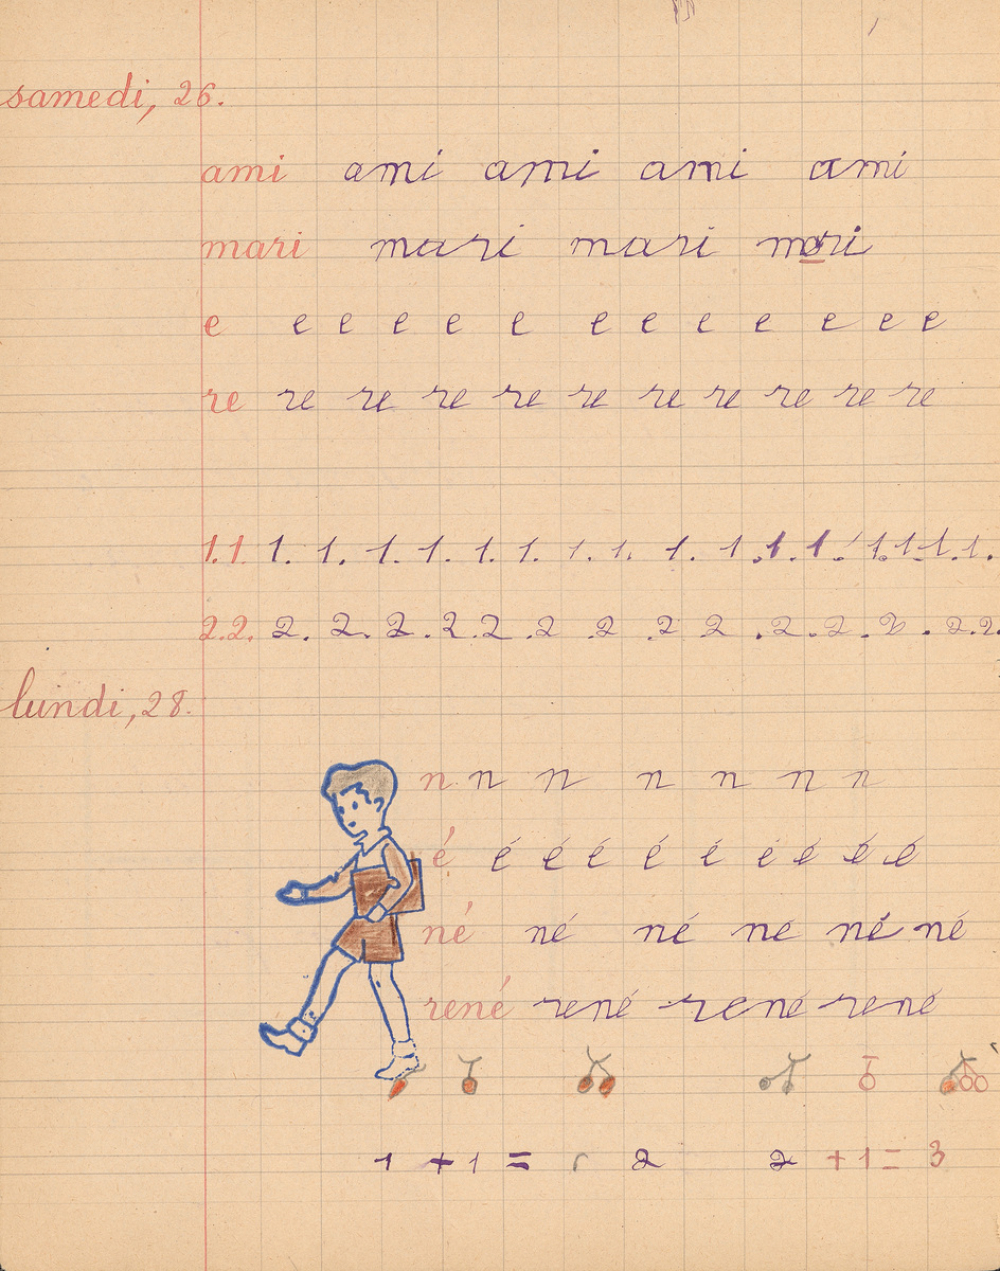 samedi, 26.
ami ami ami ami ami
mari mari mari mari
e e e e e e e e e e e e e
re re re re re re re re re re re
1.1. 1. 1. 1. 1. 1. 1. 1. 1. 1. 1. 1. 1. 1. 1. 1. 1. 1.
2.2. 2. 2. 2. 2. 2. 2 .2 .2 2 .2 .2 .2 .2.2.
lundi, 28.
n n n n n n n
é é é é é é é é é é
né né né né né né
rené rené rené rené
1 + 1 = 2 2 + 1 = 3